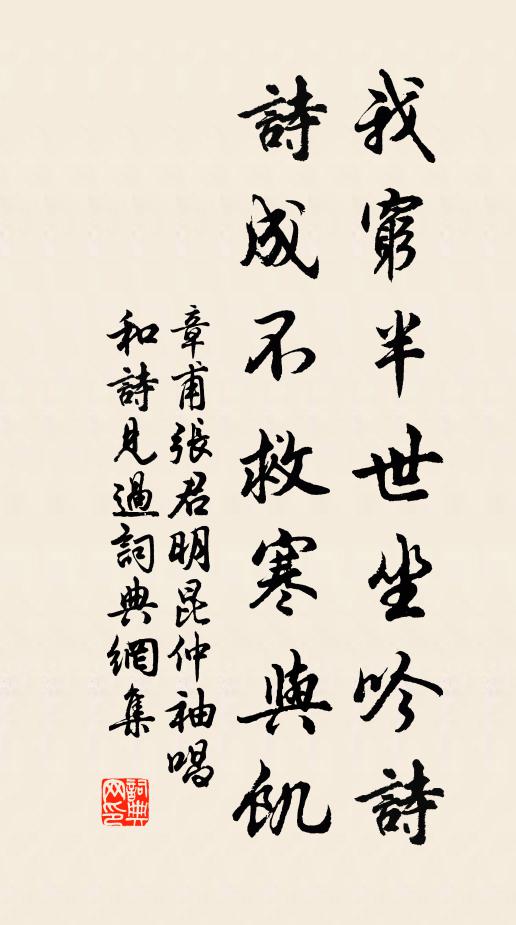 我窮半世坐吟詩
詩成不救寒與飢
章甫張君明昆仲袖唱
和詩見過詞典網集
詞典
网印